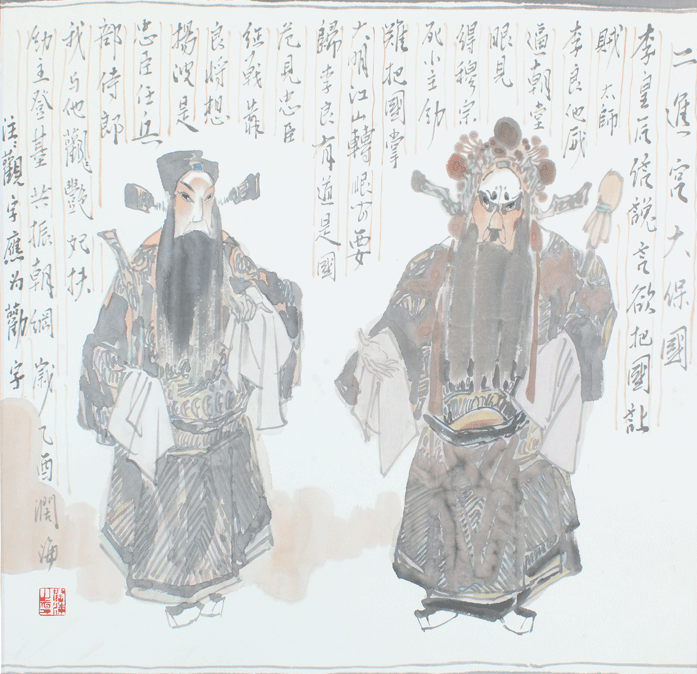 二進宮大保國
李皇后信讒言欲把國让
賊太師
李良他威
逼朝堂
眼見
得穆宗
死小主幼
難把國掌
大明江山轉眼要
歸李良有道是國
危見忠臣
經戰靠
良將想
楊波是
忠臣任兵
部侍郎
我与他觀艷妃扶
幼主登基共振朝綱 歲乙酉潤海
注：觀字應为勸字